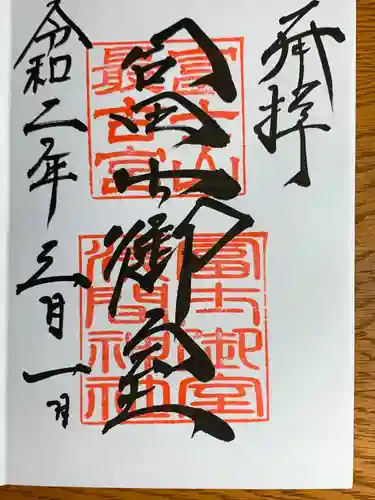 奉拝
冨士御室
富士山
最古宮
富士御室
浅間神社
令和二年三月一日